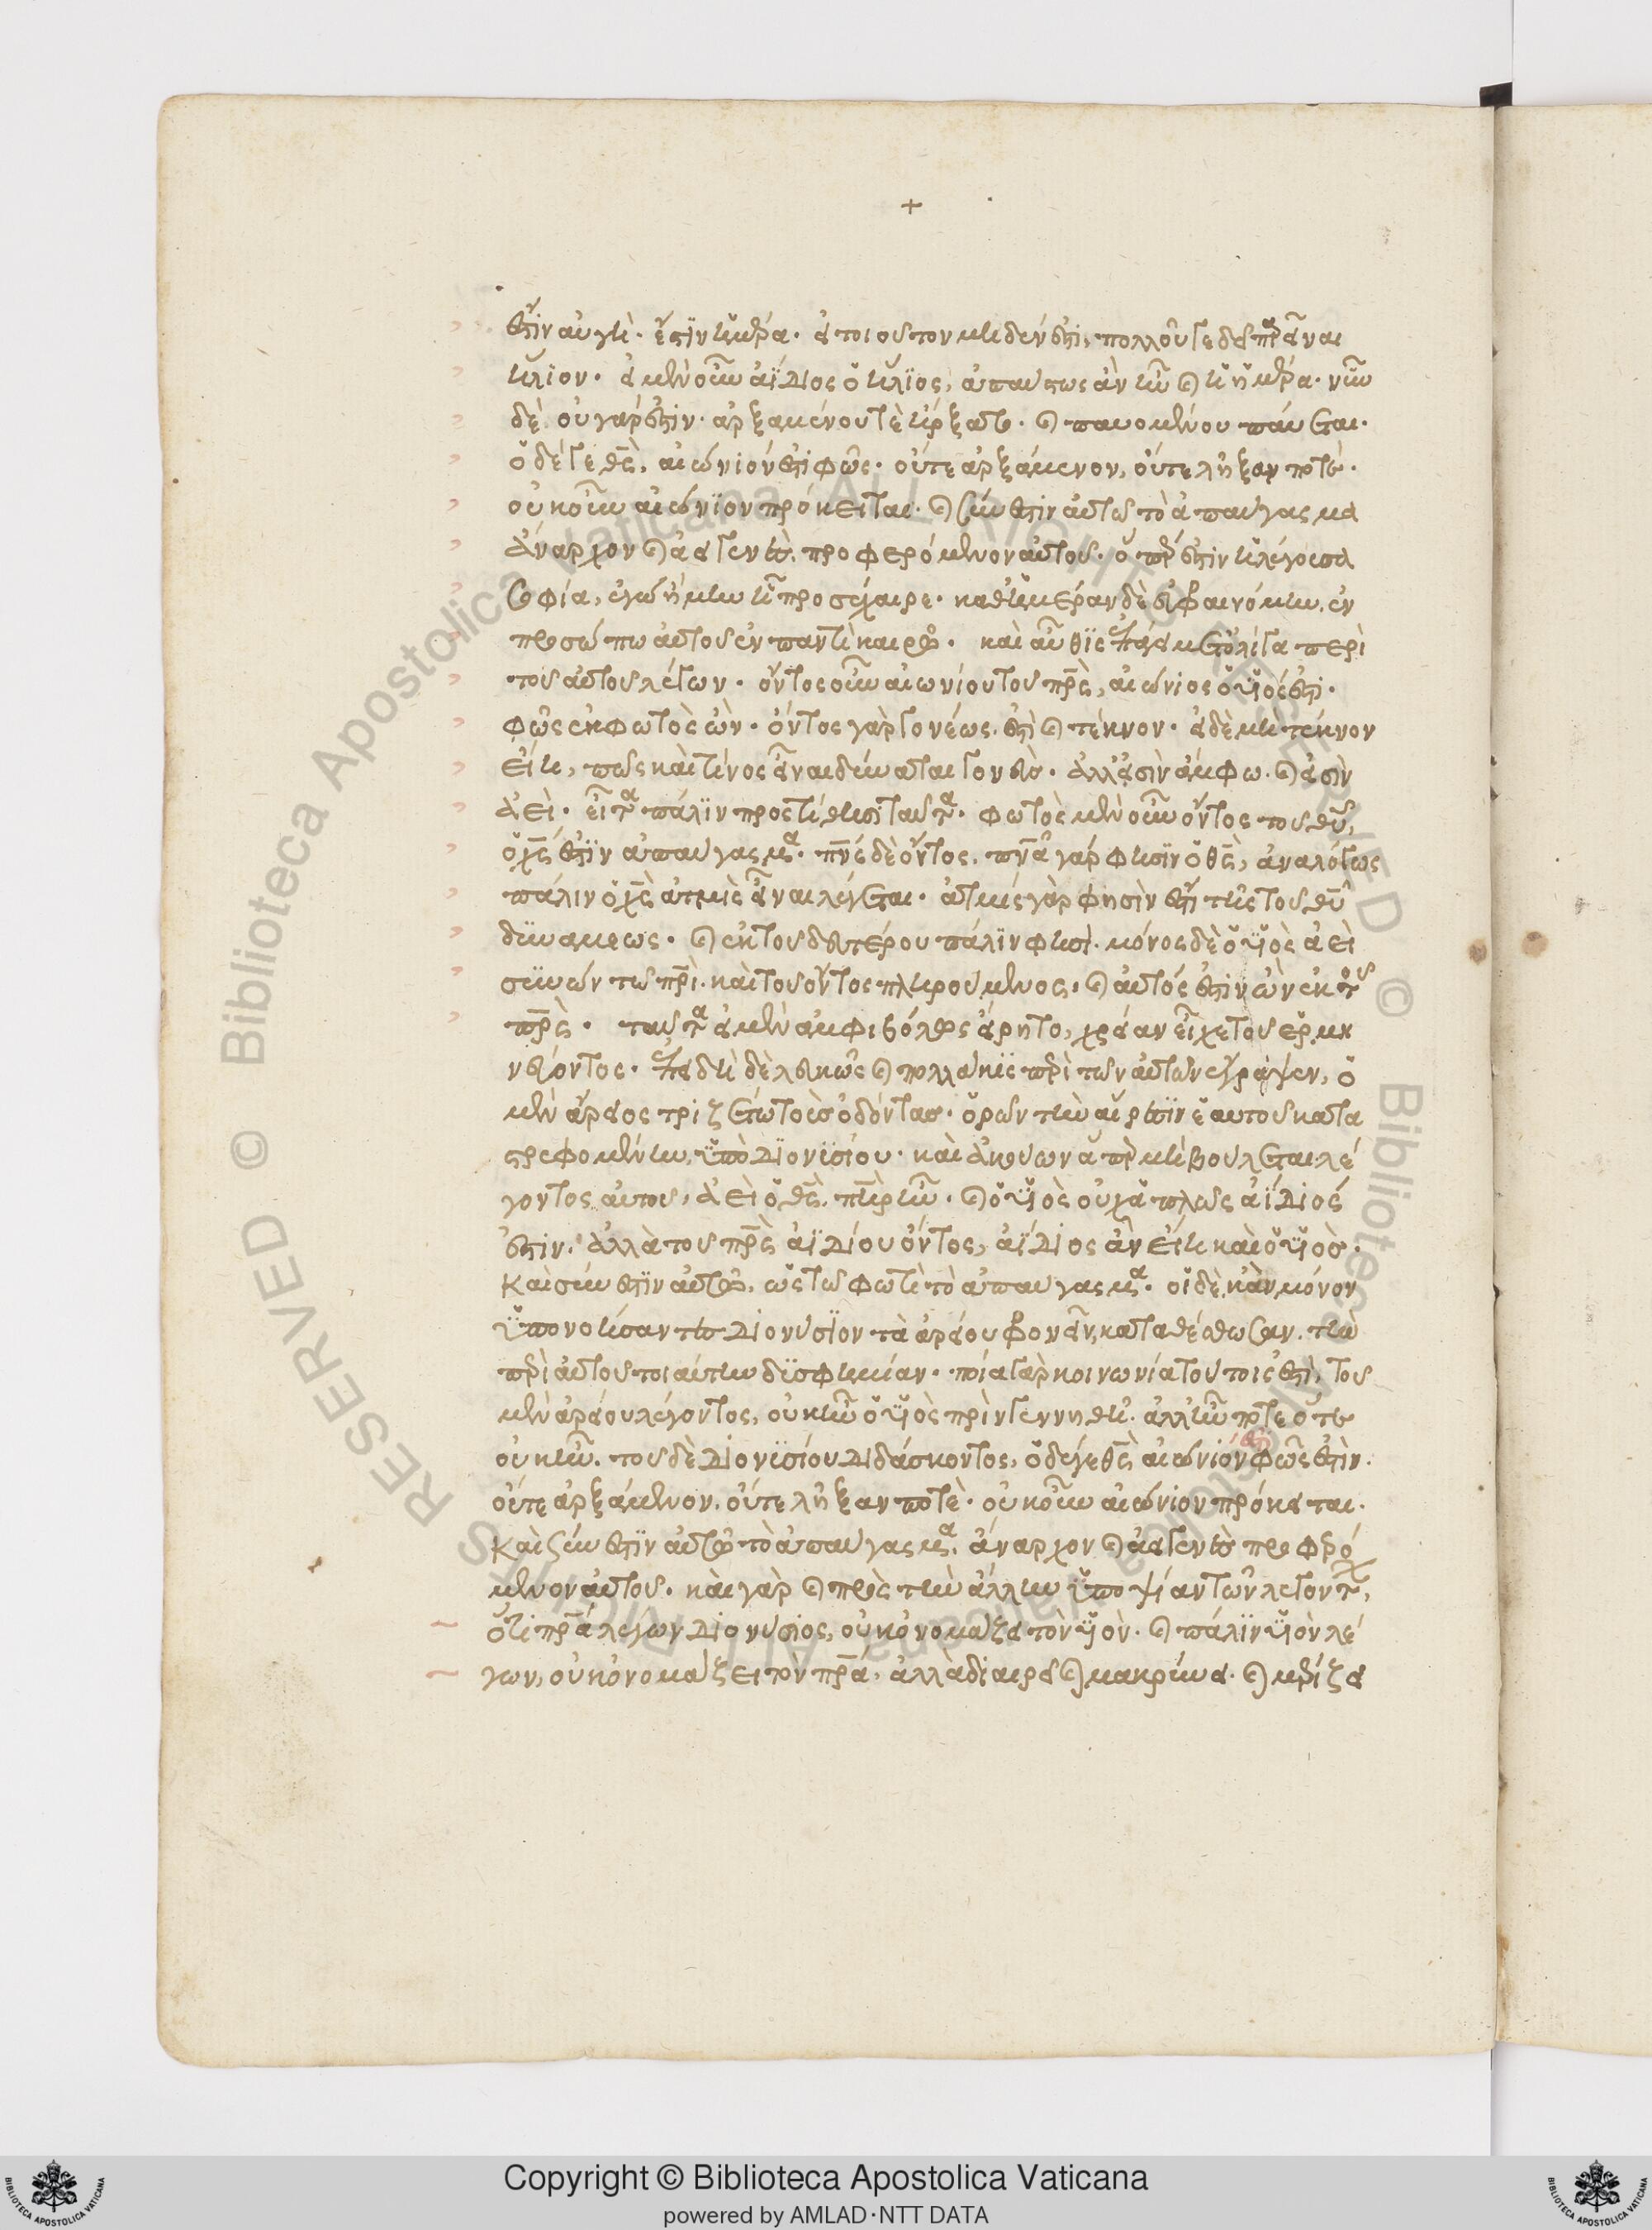 +
ἐστὶν αὐγή· ἔστιν ἡμέρα· εἰ τοιοῦτον μηδέν ἐστι, πολλοῦ γε δεῖ παρεῖναι
ἥλιον· εἰ μὲν οὖν ἀΐδιος ὁ ἥλιος, ἄπαυστος ἂν ἦν καὶ ἡ ἡμέρα· νῦν
δέ, οὐ γάρ ἐστιν· ἀρξαμένου τὲ ἤρξατο· καὶ παυομένου παύεται·
ὁ δέ γε θς, αἰώνιόν ἐστι φῶς· οὔτε ἀρξάμενον, οὔτε λῆξαν ποτέ·
οὐκοῦν αἰώνιον πρόκειται· καὶ σύνεστιν αὐτῶ τὸ ἀπαύγασμα
ἄναρχον καὶ ἀειγενὲς προφερόμενον αὐτοῦ· ὅπερ ἐστὶν ἡ λέγουσα
σοφία, ἐγὼ ἤμην ἧ προσέχαιρε· καθ' ἡμέραν δὲ εὐφραινόμην, ἐν
προσώπω αὐτοῦ ἐν παντὶ καιρῶ· καὶ αὖθις μετ' ὀλίγα περὶ
τοῦ αὐτοῦ λέγων· ὄντος οὖν αἰωνίου τοῦ πρς, αἰώνιος ὁ υἱός ἐστι·
φῶς ἐκ φωτὸς ὢν· ὄντος γὰρ γονέως, ἐστὶ καὶ τέκνον· εἰ δὲ μὴ τέκνον
εἴη, πῶς καὶ τίνος εἶναι δύναται γονεύς· ἀλλ' εἰσὶν ἄμφω· καὶ εἰσὶν
ἀεὶ· εἶτα πάλιν προστίθησι ταῦτα· φωτὸς μὲν οὖν ὄντος τοῦ θυ,
ὁ χς ἐστὶν ἀπαύγασμα· πνς δὲ ὄντος, πνα γάρ φησιν ὁ θς, ἀναλόγως
πάλιν ὁ χς ἀτμὶς εἶναι λέγεται· ἀτμὶς γὰρ φησὶν ἐστὶ τῆς τοῦ θυ
δυνάμεως· καὶ ἐκ τοῦ δευτέρου πάλιν φησὶ· μόνος δὲ ὁ υἱὸς ἀεὶ
συνὼν τῶ πρὶ· καὶ τοῦ ὄντος πληρούμενος· καὶ αὐτός ἐστιν ὢν ἐκ τοῦ
πρς· ταῦτα εἰ μὲν ἀμφιβόλως εἴρητο, χρείαν εἶχε τοῦ ἑρμη
νεύοντος· ἐπειδὴ δὲ λευκῶς καὶ πολλάκις περὶ τῶν αὐτῶν ἔγραψεν, ὁ
μὲν ἄρειος τριζέτω τοὺς ὀδόντας· ὁρῶν τὴν αἵρεσιν ἑαυτοῦ κατα
στρεφομένην, ὑπὸ διονυσίου· καὶ ἀκούων ἅπερ μὴ βούλεται λέ
γοντος αὐτοῦ, ἀεὶ ὁ θς, πηρ ἦν· καὶ ὁ υἱὸς οὐχ ἁπλῶς ἀΐδιός
ἐστιν· ἀλλὰ τοῦ πρς ἀϊδίου ὄντος, ἀΐδιος ἂν εἴη καὶ ὁ υἱος·
καὶ σύνεστιν αὐτῶ, ὡς τῶ φωτὶ τὸ ἀπαύγασμα· οἱ δὲ κἂν μόνον
ὑπονοήσαντες διονύσιον τὰ ἀρείου φρονεῖν, καταθέσθωσαν τὴν
περὶ αὐτοῦ τοιαύτην δυσφημίαν· ποία γὰρ κοινωνία τούτοις ἐστὶ, τοῦ
μὲν ἀρείου λέγοντος, οὐκ ἦν ὁ υἱὸς πρὶν γεννηθῆ· ἀλλ' ἦν ποτε ὅτε
οὐκ ἦν, τοῦ δὲ διονυσίου διδάσκοντος, ὁ δέ γε θς αἰώνιόν φῶς ἐστὶν·
οὔτε ἀρξάμενον, οὔτε λῆξαν ποτὲ· οὐκοῦν αἰώνιον πρόκειται·
καὶ σύνεστιν αὐτῶ τὸ ἀπαύγασμα, ἄναρχον καὶ ἀειγενὲς προφερό
μενον αὐτοῦ· καὶ γὰρ καὶ πρὸς τὴν ἄλλην ὑποψίαν τῶν λεγόντων,
ὅτι πρα λέγων διονύσιος, οὐκ ὀνομάζει τὸν υἱὸν· καὶ πάλιν υἱὸν λέ
γων, οὐκ ὀνομάζει τὸν πρα, ἀλλὰ διαιρεῖ καὶ μακρύνει· καὶ μερίζει